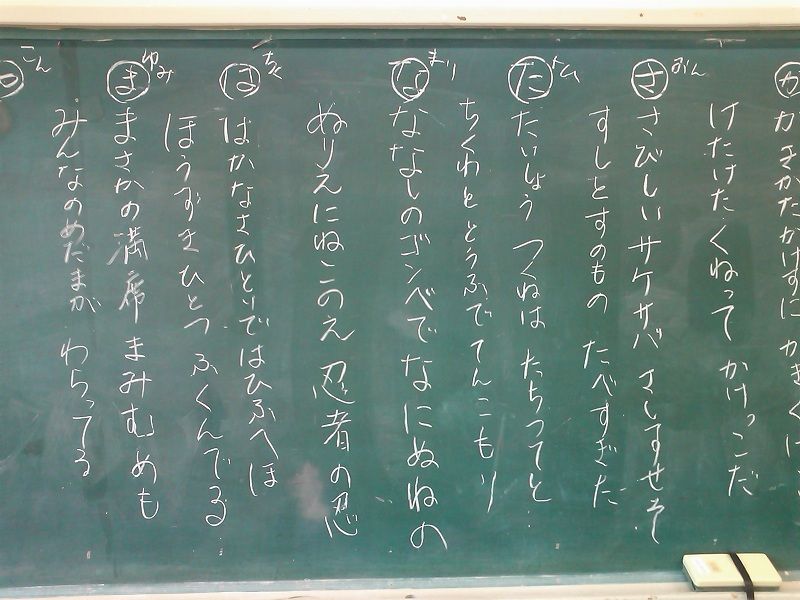 か
かきかたかけずに かきくけこ
けたけた くねって かけっこだ
さ おん
さびしい サケ サバ さしすせそ
すしとすのもの たべすぎた
た トム
たいしょう つくねは たちつてと
ちくわと とうふで てんこもり
な まり
ななしのゴンべで なにぬねの
ぬりえに ねこのえ 忍者の忍
は ちく
はかなさひとりで はひふへほ
ほうずきひとつ ふくんでる
ま ゆみ
まさかの満席 まみむめも
みんなのめだまが わらってる
こん